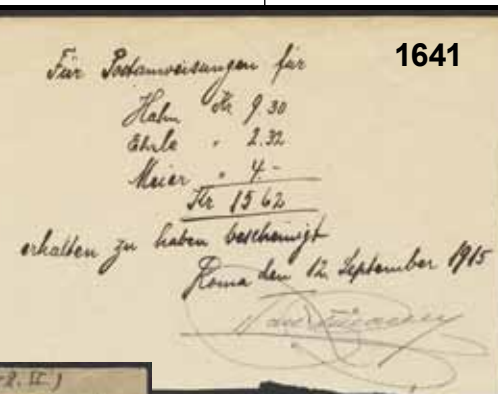 1641
Für Postanweisungen für
Hahn Kr 9.30
Ehrle " 2.32
Meier " 4-
Kr 15 62
erhalten zu haben bescheinigt
Roma den 12. September 1915